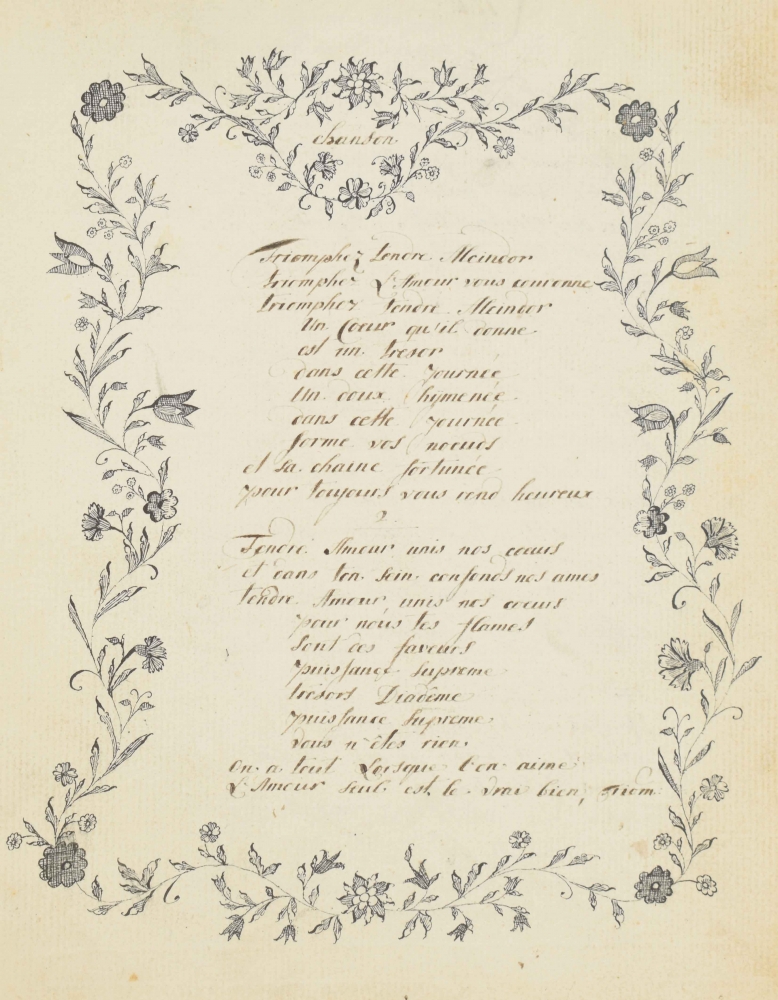 chanson
Triomphez tendre Alcindor
triomphez L'Amour vous couronne
triomphez tendre Alcindor
Un Coeur qu'il donne
est un tresor
dans cette journée
Un doux himenée
dans cette journée
forme vos noeuds
et sa chaine fortunée
pour toujours vous rend heureux
2
Tendre Amour unis nos coeurs
et dans ton sein confonds nos ames
tendre Amour unis nos coeurs
pour nous tes flames
sont des faveurs
puissance supreme
trésors Diadême
puissance supreme
vous n'êtes rien
on a tout Lorsque l'on aime
L'Amour seul est le vrai bien, triom